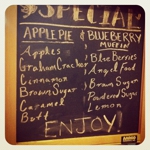 SPECIAL
APPLE PIE & BLUEBERRY MUFFIN
Apples
Graham Cracker
Cinnamon
Brown Sugar
Caramel
Butt
Blue Berries
Angel Food
Brown Sugar
Powdered Sugar
Lemon
ENJOY!